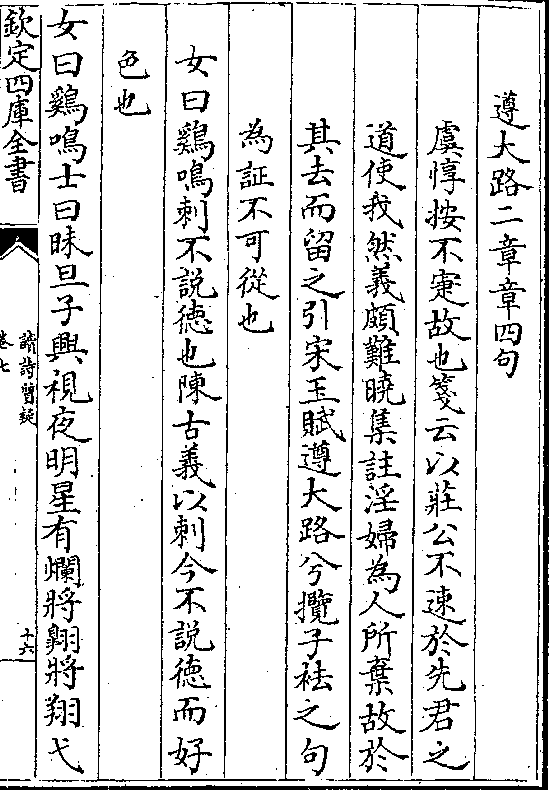 遵大路二章章四句
虞惇按不寁故也箋云以莊公不速於先君之
道使我然義頗難曉集註淫婦為人所棄故於
其去而留之引宋玉賦遵大路兮攬子袪之句
為証不可從也
女曰鷄鳴刺不說徳也陳古義以刺今不說徳而好
色也
女曰鷄鳴士曰昧旦子興視夜明星有爛將翺將翔弋
欽定四庫全書
讀詩質疑
卷七
十六